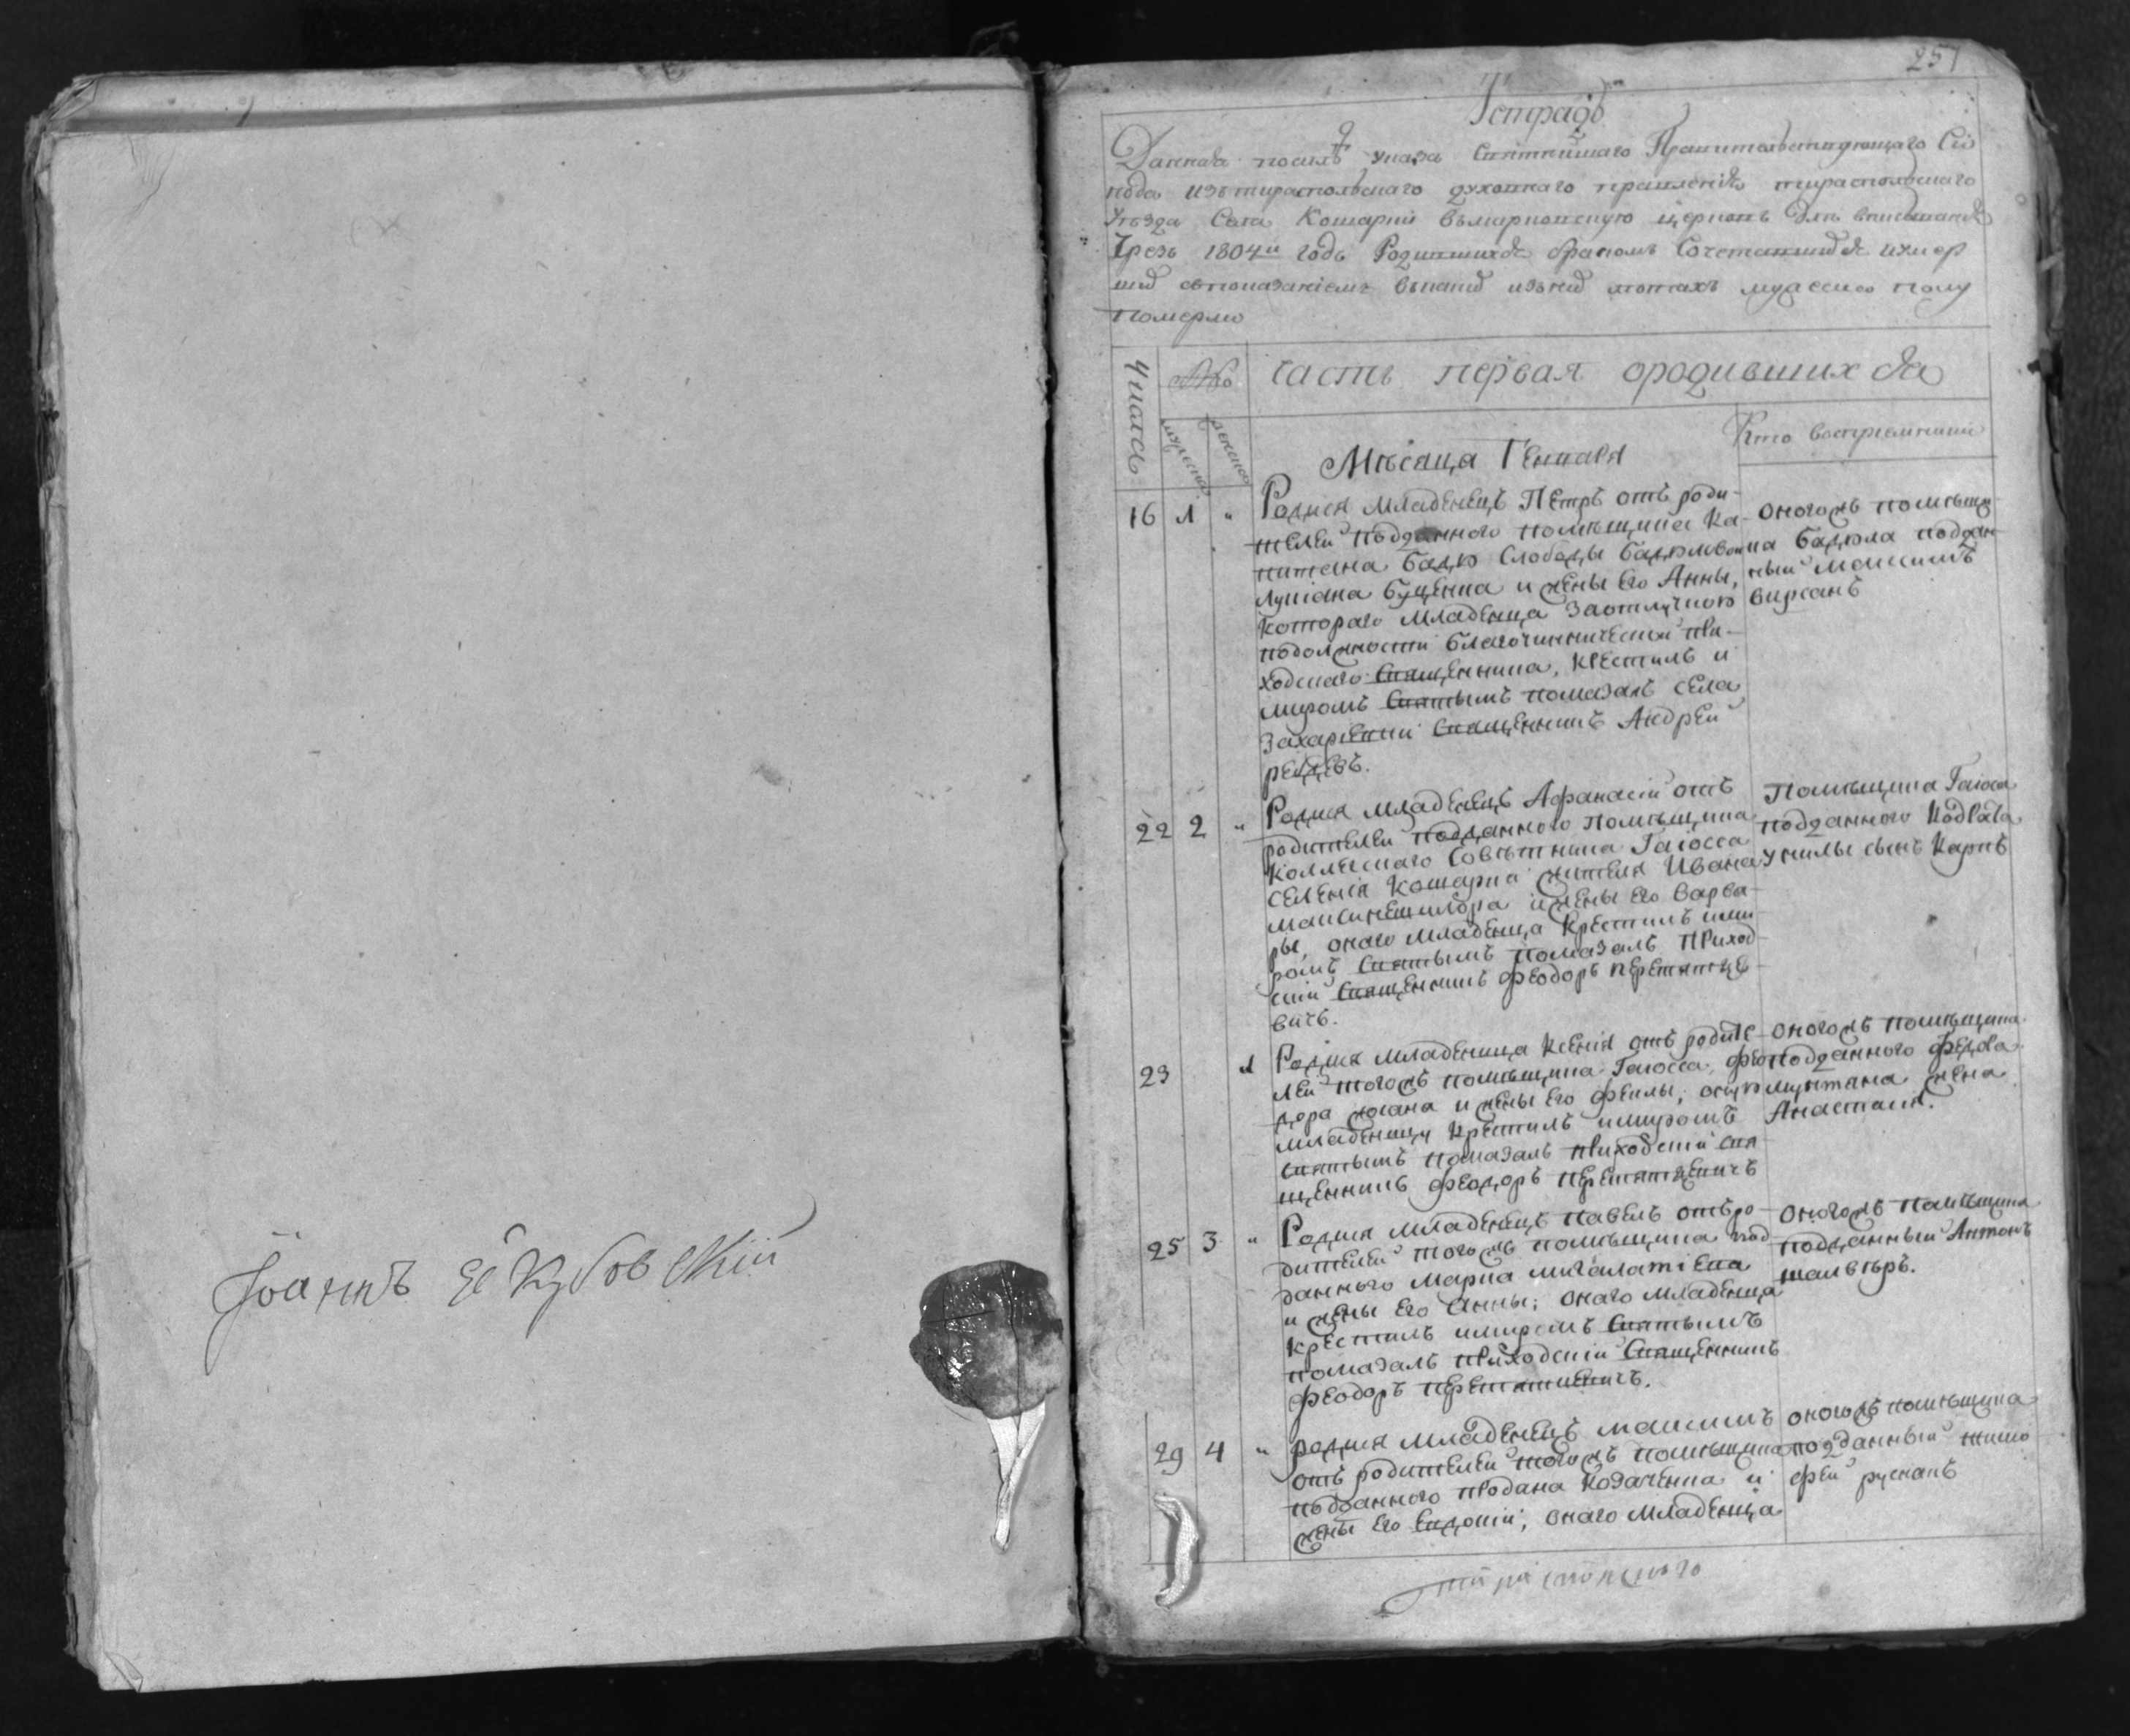 Іоаннъ Якубовскій
257
Тетрадь
Данная посилѣ указа Святѣйшаго Правительствующаго Си
нода изътираспольскаго духовнаго правленія тираспольскаго
уѣзда Села Кошарки церковь для вписыванія
Чрезъ 1804й годъ Родившихся бракомъ Сочетавшихся иумер
шихъ
померло
Числа
№о
часть первая ородившихся
мужеска
женска
Кто воспріемники
Мѣсяца Генваря
16 1 " Родися младенецъ Петръ отъ роди-
телей подданного помѣщика Ка-
питана Бадю Слободы
Лукіана Буценка и жены его Анны,
Котораго Младенца Заотлучкою
подолжности благочиннической при-
ходскаго Священника, Крестилъ и
миромъ Святымъ помазалъ села
Захаріевки Священникъ Андрей
оногожъ помѣщи
ка Бадюла поддан
ный Максимъ
Вирсанъ
22 2 " Родися младенецъ Афанасій отъ
родителей подданного помѣщика
Коллежскаго Совѣтника Гаюсса
селенія Кошарки жителя Ивана
и жены его Варва-
ры, онаго младенца Крестилъ ими-
ромъ Святымъ помазалъ Приход-
скій Священникъ Феодоръ Перетятке-
вичъ.
Помѣщика Гаюса
подданного Кодрата
сынъ Карпъ
23 1 Родися младеница Ксенія отъ родите-
лей тогожъ помѣщика Гаюсса, Фео-
дора и жены его оную
младеницу Крестилъ имиромъ
Святымъ помазалъ приходскій свя-
щенникъ Феодоръ Перетяткевичъ
оногожъ помѣщика
подданного Федора
мунтяна жена
Анастасія.
25 3 " Родися младенецъ Павелъ отъ ро-
дителей тогожъ помѣщика под-
данного Марка
и жены его Анны; онаго младенца
Крестилъ имиромъ Святымъ
помазалъ приходскій Священникъ
Феодоръ Перетяткевичъ.
оногожъ помѣщика
подданный Антонъ
29 4 " родися младенецъ максимъ
отъ родителей тогожъ помѣщика
подданного Продана Козаченка и
жены его Евдокіи, онаго младенца
оногожъ помѣщика
подданный тимо
фей руснакъ